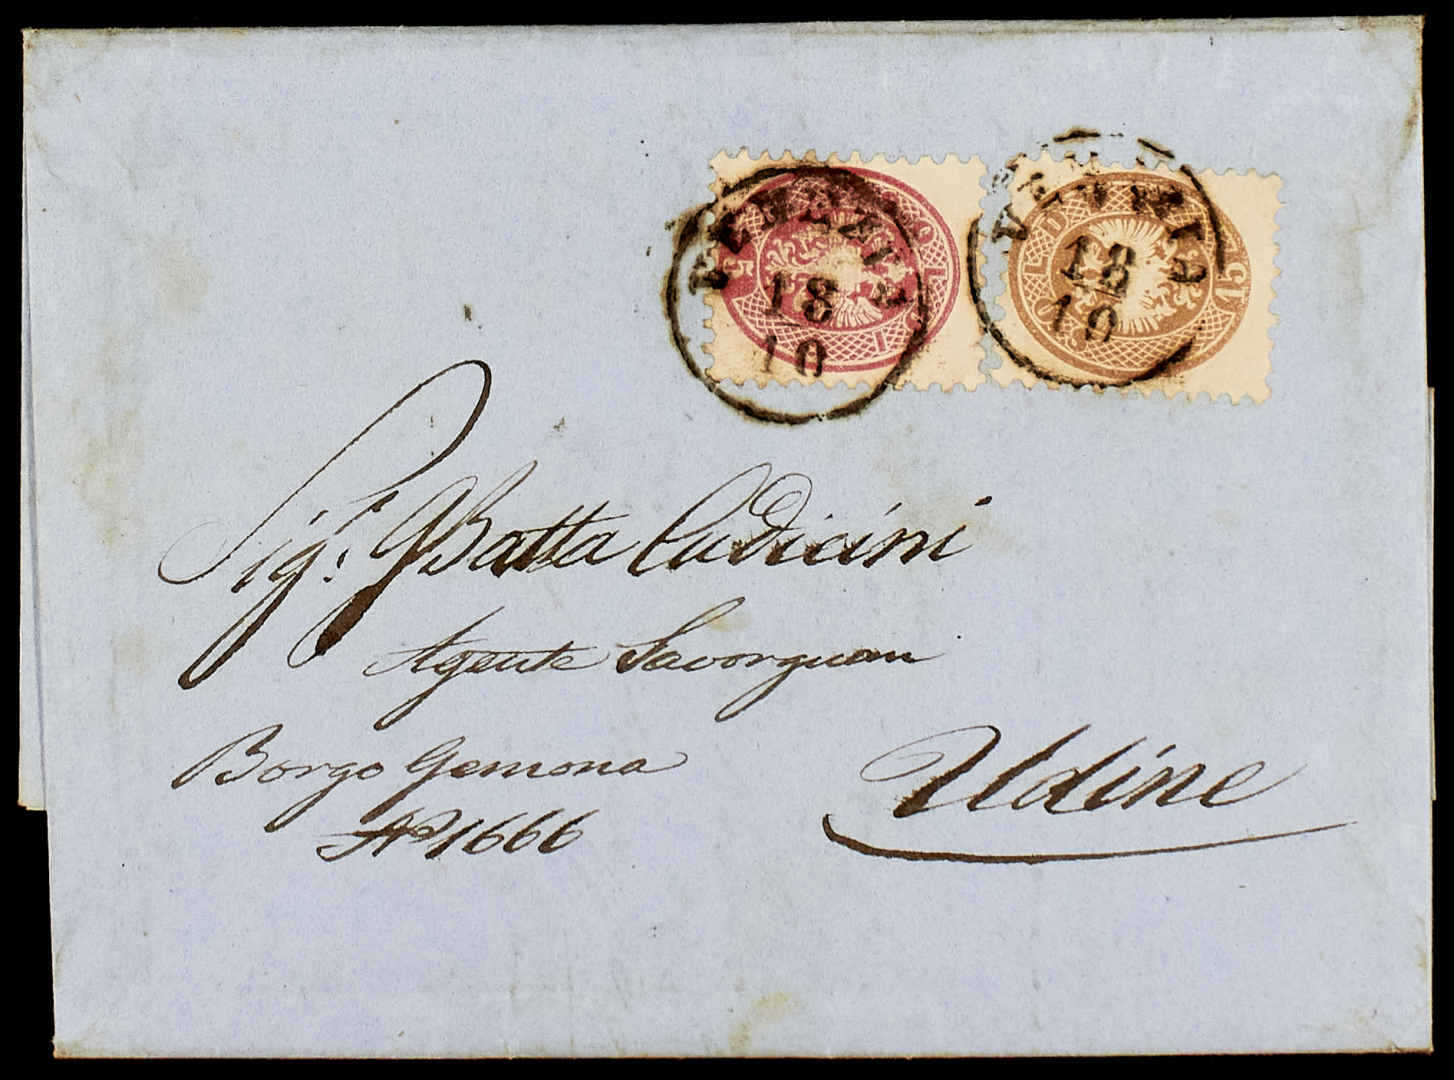 VENEZIA
18
10
VENEZIA
18
10
5 SOLDI
15
Sig.r GBatta Cudicini
Agente Savorgnan
Borgo Gemona
N° 1666
Udine